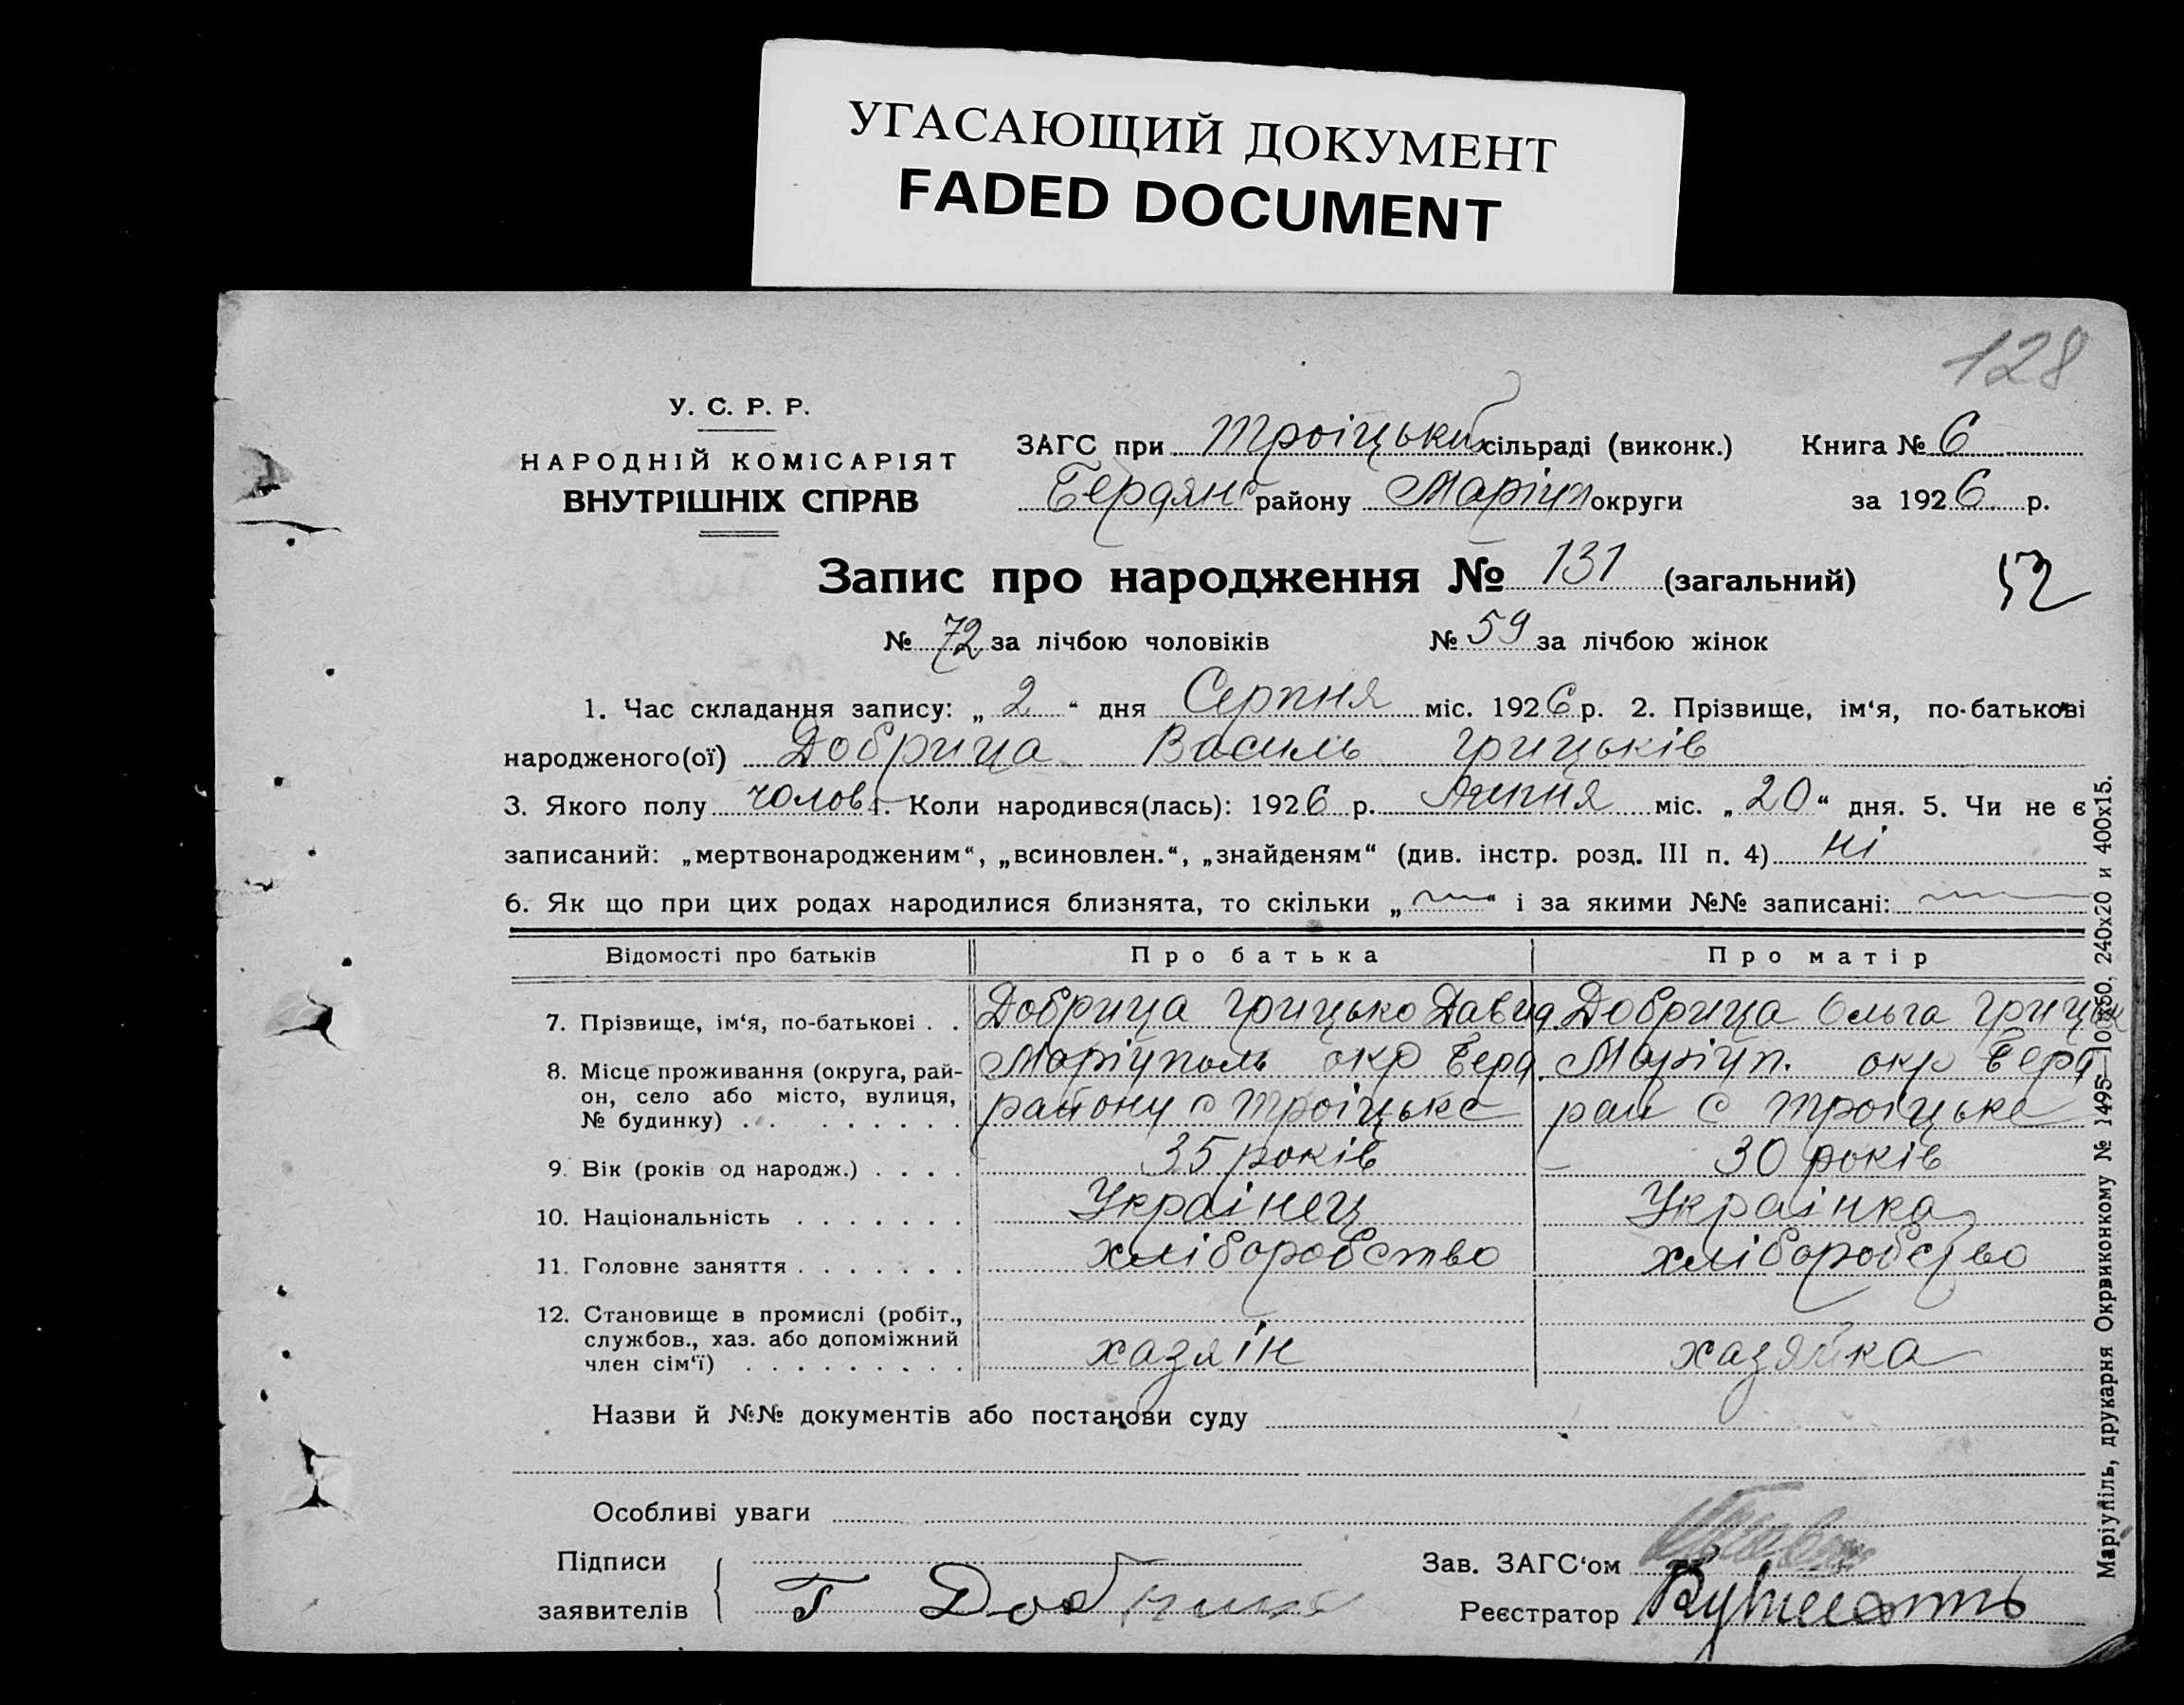 УГАСАЮЩИЙ ДОКУМЕНТ
FADED DOCUMENT
128
У. С. Р. Р.
НАРОДНІЙ КОМІСАРІЯТ
ВНУТРІШНІХ СПРАВ
ЗАГС при Троіцький сільраді (виконк.) Книга № 6
Бердянс району Маріуп округи за 1926 р.
Запис про народження № 131 (загальний) 52
№ 72 за лічбою чоловіків № 59 за лічбою жінок
1. Час складання запису: „ 2 “ дня Серпня міс. 1926 р. 2. Прізвище, ім‘я, по-батькові
народженого(ої) Добрица Василь Грицьків
3. Якого полу чолов 4. Коли народився(лась): 1926 р. Липня міс. „ 20 “ дня. 5. Чи не є
записаний: „мертвонародженим“, „всиновлен.“, „знайденям“ (див. інстр. розд. III п. 4) ні
6. Як що при цих родах народилися близнята, то скільки „ — “ і за якими №№ записані: —
Відомості про батьків Про батька Про матір
7. Прізвище, ім‘я, по-батькові . . Добрица Грицько Давид Добрица Ольга Грицьк
8. Місце проживання (округа, рай- Маріуполь окр Берд. Маріуп. окр Берд
он, село або місто, вулиця, району с Троіцьке рай с Троіцьке
№ будинку) . . . . . . . . .
9. Вік (років од народж.) . . . . 35 років 30 років
10. Національність . . . . . . . Украінец Украінка
11. Головне заняття . . . . . . . хліборобство хліборобство
12. Становище в промислі (робіт.,
службов., хаз. або допоміжний хазяін хазяйка
член сім‘ї) . . . . . . . . .
Назви й №№ документів або постанови суду
Особливі уваги
Підписи Зав. ЗАГС‘ом
заявителів Г Добрица Реєстратор
Маріупіль, друкарня Окрвиконкому № 1495—100х50, 240х20 и 400х15.